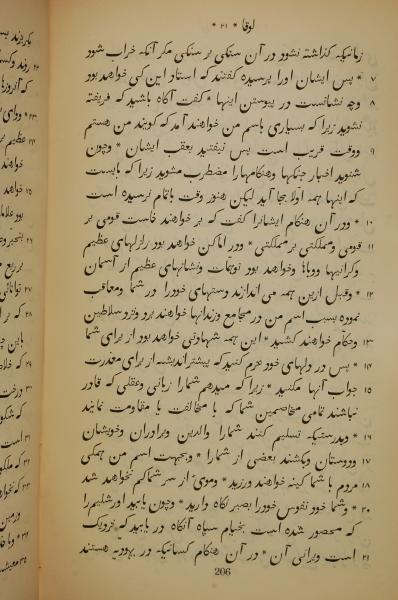 لوقا * ۲۱ *
زمانیکه گذاشته نشود در آن سنکی بر سنکی مکر آنکه خراب شود
۷ * پس ایشان اورا پرسیده کفتند که استاد این کی خواهد بود
۸ وچه نشانست در پیوستن اینها * کفت آکاه باشید که فریفته
نشوید زیرا که بسیاری باسم من خواهند آمد که کویند من هستم
۹ ووقت قریب است پس نیفتید بعقب ایشان * وچون
شنوید اخبار جنکها وهنکامهارا مضطرب مشوید زیرا که بایست
که اینها همه اولا بجا آید لیکن هنوز وقت باتمام نرسیده است
۱۰ * ودر آن هنکام ایشانرا کفت که بر خواهند خاست قومی بر
۱۱ قومی ومملکتی بر مملکتی * ودر اماکن خواهد بود زلزلهای عظیم
وکرانیها ووباها وخواهد بود توهمات ونشانهای عظیم از آسمان
۱۲ * وقبل ازین همه می اندازند دستهای خودرا در شما ومعاقب
نموده بسبب اسم من در مجامع وزندانها خواهند برد ونزد سلاطین
۱۳ وحکام خواهند کشید * این همه شهادتی خواهد بود از برای شما
۱۴ * پس در دلهای خود عزم کنید که پیشتر اندیشه از برای معذرت
۱۵ جواب آنها مکنید * زیرا که میدهم شمارا زبانی وعقلی که قادر
نباشند تمامی مخاصمین شما که با مخالفت یا مقاومت نمایند
۱۶ * وبدرستیکه تسلیم کنند شمارا والدین وبرادران وخویشان
۱۷ ودوستان وبکشند بعضی از شمارا * وبجهت اسم من همکی
۱۸ مردم با شما کینه خواهند ورزید * وموی از سر شما کم نخواهد شد
۲۰ * وشما خود نفوس خودرا بصبر نکاه دارید * وچون یابید اورشلیم را
که محصور شده است بخیام سپاه آنکاه در یابید که نزدیک
۲۱ است ویرانی آن * در آن هنکام کسانیکه در یهودیه هستند
206